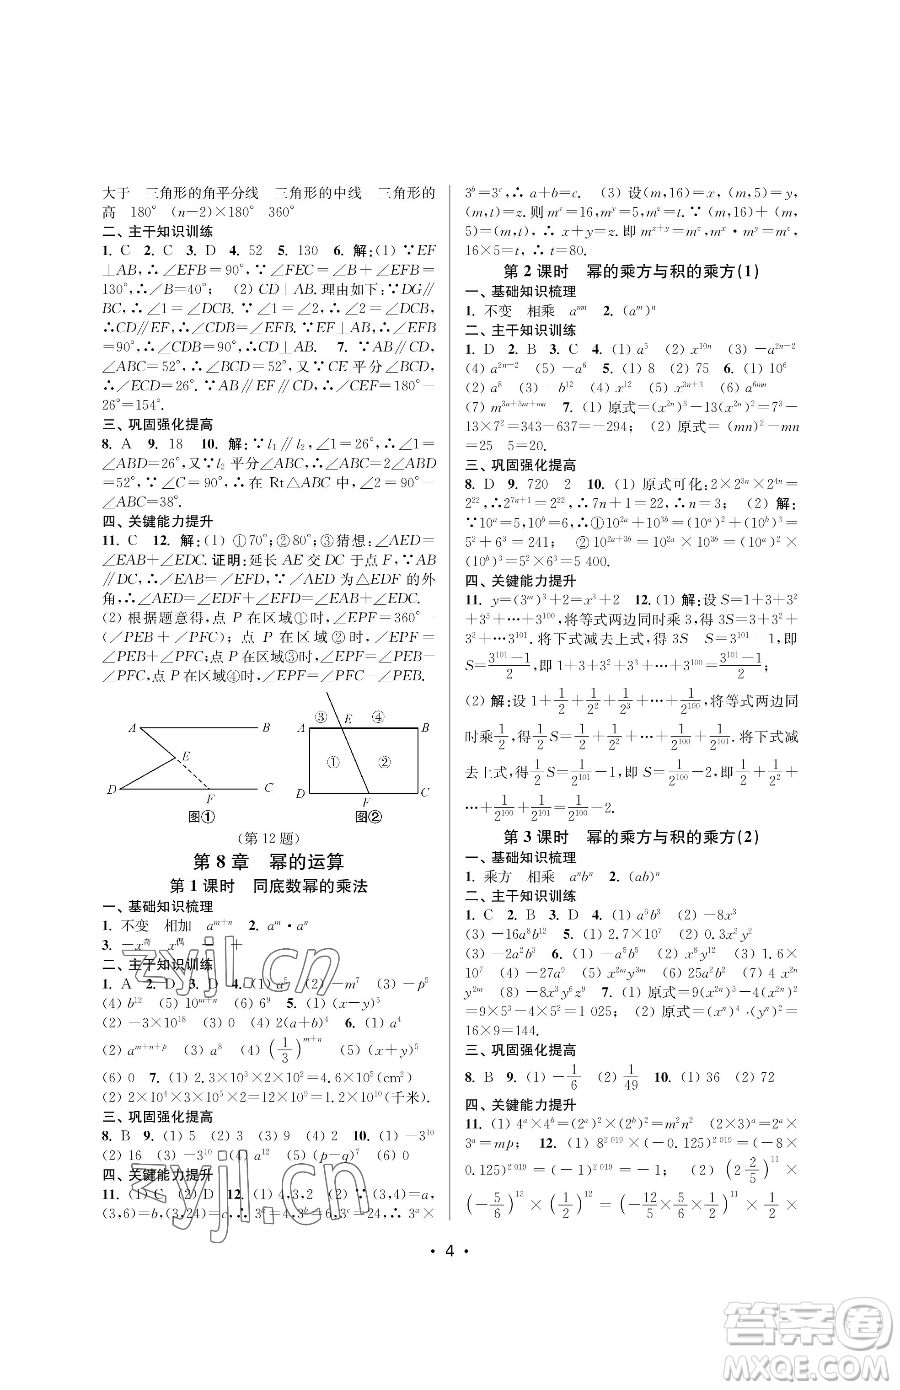 大于　三角形的角平分线　三角形的中线　三角形的
高　180°　(n-2)×180°　360°
二、主干知识训练
1. C　2. C　3. D　4. 52　5. 130　6. 解:(1) ∵EF
⊥AB,∴∠EFB=90°,∵∠BEF+∠B+∠EFB=
130°,∴∠B=40°;　(2) CD⊥AB. 理由如下:∵DG∥
BC,∴∠1=∠DCB. ∵∠1=∠2,∴∠2=∠DCB,
∴CD∥EF,∴∠EFB=∠CDB. ∵EF⊥AB,∴∠EFB
=90°,∴∠CDB=90°,∴CD⊥AB.　7. ∵AB∥CD,
∠ABC=52°,∴∠BCD=∠ABC=52°,又∵CE 平分∠BCD,
∴∠ECD=26°. ∵AB∥EF∥CD,∴∠CEF=180°-
26°=154°.
三、巩固强化提高
8. A　9. 18　10. 解:∵l₁∥l₂,∠1=26°,∴∠1=
∠ABD=26°,又∵l₂平分∠ABC,∴∠ABC=2∠ABD
=52°,∵∠2=90°,∴在 Rt△ABC 中,∠2=90°-
∠ABC=38°.
四、关键能力提升
11. C　12. 解:(1) ①70°;②80°;③猜想:∠AED=
∠EAB+∠EDC. 证明:延长 AE 交 DC 于点 F,∵AB
∥DC,∴∠EAB=∠EFD,∵∠AED 为△EDF 的外
角,∴∠AED=∠EDF+∠EFD=∠EAB+∠EDC.
(2) 根据题意得,点 P 在区域①时,∠EPF=360°-
(∠PEB+∠PFC);点 P 在区域②时,∠EPF=
∠PEB+∠PFC;点 P 在区域③时,∠EPF=∠PEB-
∠PFC;点 P 在区域④时,∠EPF=∠PFC-∠PEB.
A　B　E　D　F　C
图①
③　E　④　A　B　①　②　D　F　C
图②
(第 12 题)
第 8 章　幂的运算
第 1 课时　同底数幂的乘法
一、基础知识梳理
1. 不变　相加　a^{m+n}　2. a^m·a^n
3. -x^奇　x^偶　-　+
二、主干知识训练
1. A　2. D　3. D　4. (1) a⁵　(2) -m⁷　(3) -p⁵
(4) b¹²　(5) 10^{m+n}　(6) 6⁹　5. (1) (x-y)⁵
(2) -3×10¹⁸　(3) 0　(4) 2(a+b)⁴　6. (1) a⁴
(2) a^{m+n+p}　(3) a⁸　(4) (1/3)^{m+n}　(5) (x+y)⁵
(6) 0　7. (1) 2.3×10³×2×10²=4.6×10⁵(cm²)
(2) 2×10⁴×3×10²×2×10²=12×10⁸=1.2×10⁹(千米).
三、巩固强化提高
8. B　9. (1) 5　(2) 3　(3) 8　(4) 3　10. (1) -3¹⁰
(2) 16　(3) -3¹⁰　(4) 2a⁵　(5) (p-q)⁷　(6) 0
四、关键能力提升
11. (1) C　(2) D　12. (1) 4,3,2　(2) ∵(3,4)=a,
(3,6)=b,(3,24)=c,∴3^a=4,3^b=6,3^c=24,∴3^a×
3^b=3^c,∴a+b=c.　(3) 设(m,16)=x,(m,5)=y,
(m,t)=z. 则 m^x=16,m^y=5,m^z=t. ∵(m,16)+
(m,5)=(m,t),∴x+y=z. ∴m^x·m^y=m^z,∴
16×5=t,∴t=80.
第 2 课时　幂的乘方与积的乘方(1)
一、基础知识梳理
1. 不变　相乘　a^{nm}　2. (a^m)^n
二、主干知识训练
1. D　2. B　3. C　4. (1) a⁵　(2) x^{10n}　(3) -a^{2n-2}
(4) a^{2n-2}　(5) -a⁶　5. (1) 8　(2) 225　6. (1) 10⁶
(2) a⁸　(3) -b¹²　(4) b¹²　(5) x^{3n+3}　(6) a^{6mn}
(7) m^{3n+3m+mn}　7. (1) 原式=(x^{2n})³-13(x^{2n})²=7³-
13×7²=343-637=-294;　(2) 原式=(mn)²-mn
=25　5=20.
三、巩固强化提高
8. D　9. 720　2　10. (1) 原式可化:2×2^{3n}×2^{4n}=
2²²,∴2^{7n+1}=2²²,∴7n+1=22,∴n=3;　(2) 解:
∵10^a=5,10^b=6,∴①10^{2a}+10^{3b}=(10^a)²+(10^b)³=
5²+6³=241;　②10^{2a+3b}=10^{2a}×10^{3b}=(10^a)²×
(10^b)³=5²×6³=5 400.
四、关键能力提升
11. y=(3^m)³+2=x³+2　12. (1) 解:设 S=1+3+3²
+3³+…+3¹⁰⁰,将等式两边同时乘 3,得 3S=3+3²+3³
+…+3¹⁰¹. 将下式减去上式,得 3S　S=3¹⁰¹-1,即
S=(3¹⁰¹-1)/2,即 1+3+3²+3³+…+3¹⁰⁰=(3¹⁰¹-1)/2;
(2) 解:设 1+1/2+1/2²+1/2³+…+1/2¹⁰⁰,将等式两边同
时乘1/2,得1/2S=1/2+1/2²+…+1/2¹⁰⁰+1/2¹⁰¹,将下式减
去上式,得1/2S=1/2¹⁰¹-1,即 S=1/2¹⁰⁰-2,即 1+1/2+1/2²+
…+1/2¹⁰⁰=1/2¹⁰⁰-2.
第 3 课时　幂的乘方与积的乘方(2)
一、基础知识梳理
1. 乘方　相乘　a^n b^n　2. (ab)^n
二、主干知识训练
1. C　2. B　3. C　4. (1) a⁵b³　(2) -8x³
(3) -16a⁸b¹²　5. (1) 2.7×10⁷　(2) 0.3x³y²
(3) -2a²b³　6. (1) -a⁵b⁵　(2) x⁸y¹²　(3) 1.6×
10⁷　(4) -27a⁹　(5) x^{2m}y^{3m}　(6) 25a²b²　(7) 4 x^{2n}
y^{2m}　(8) -9x³y⁶z⁹　7. (1) 原式=9(x^{2n})³-4(x^{2n})²
=9×5³-4×5²=1 025;　(2) 原式=(x^n)⁴·(y^n)²=
16×9=144.
三、巩固强化提高
8. B　9. (1) -1/6　(2) 1/49　10. (1) 36　(2) 72
四、关键能力提升
11. (1) 4^a×4^b=(2^a)²×(2^b)²=m²n²　(2) (2×3)^a=2^a×3^a
=mp;　12. (1) 8^{2 019}×(-0.125)^{2 019}=(-8×
0.125)^{2 019}=(-1)^{2 019}=-1;　(2) (2 2/5)¹¹×
(-5/6)¹³×(1/2)¹²=(-12/5×5/6×1/2)¹¹×(-5/6)²×
·4·
zyjl.cn
zyjl.cn
答案圈
MXQE.COM